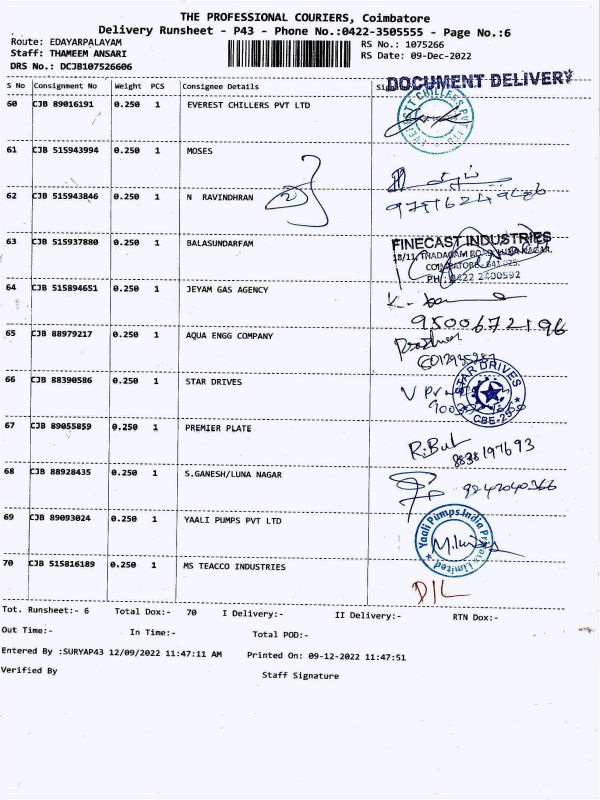 THE PROFESSIONAL COURIERS, Coimbatore
Delivery Runsheet - P43 - Phone No.:0422-3505555 - Page No.:6
Route: EDAYARPALAYAM
Staff: THAMEEM ANSARI
DRS No.: DCJB107526606
RS No.: 1075266
RS Date: 09-Dec-2022
S No Consignment No Weight PCS Consignee Details
DOCUMENT DELIVERY
60 CJB 89016191 0.250 1 EVEREST CHILLERS PVT LTD
61 CJB 515943994 0.250 1 MOSES
62 CJB 515943846 0.250 1 N RAVINDHRAN
63 CJB 515937880 0.250 1 BALASUNDARFAM
FINECAST INDUSTRIES
64 CJB 515894651 0.250 1 JEYAM GAS AGENCY
9500672196
65 CJB 88979217 0.250 1 AQUA ENGG COMPANY
66 CJB 88390586 0.250 1 STAR DRIVES
STAR DRIVES
67 CJB 89055859 0.250 1 PREMIER PLATE
8838197693
68 CJB 88928435 0.250 1 S.GANESH/LUNA NAGAR
9842040366
69 CJB 89093024 0.250 1 YAALI PUMPS PVT LTD
Yaali Pumps India Private Limited
70 CJB 515816189 0.250 1 MS TEACCO INDUSTRIES
D/L
Tot. Runsheet:- 6 Total Dox:- 70 I Delivery:- II Delivery:- RTN Dox:-
Out Time:- In Time:- Total POD:-
Entered By :SURYAP43 12/09/2022 11:47:11 AM Printed On: 09-12-2022 11:47:51
Verified By Staff Signature